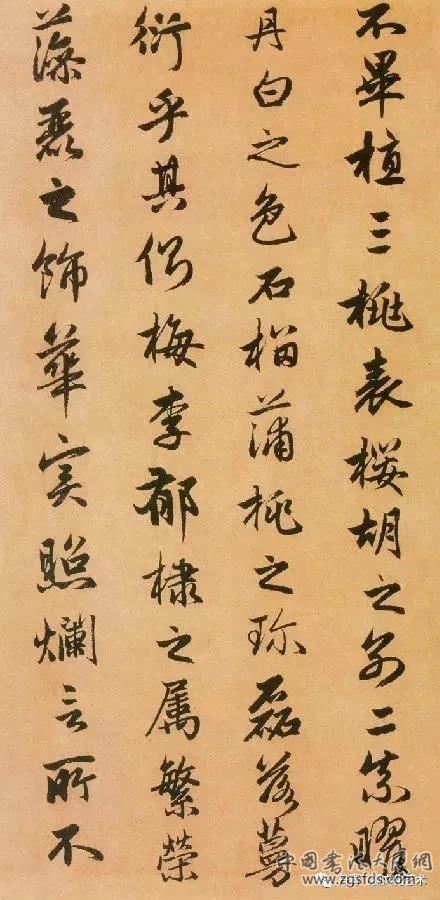 不畢植三桃表櫻胡之別二柰曜
丹白之色石榴蒲桃之珎磊落蔓
衍乎其側梅李郁棣之属繁榮
藻麗之飾華實照爛言所不
www.zgsfds.com